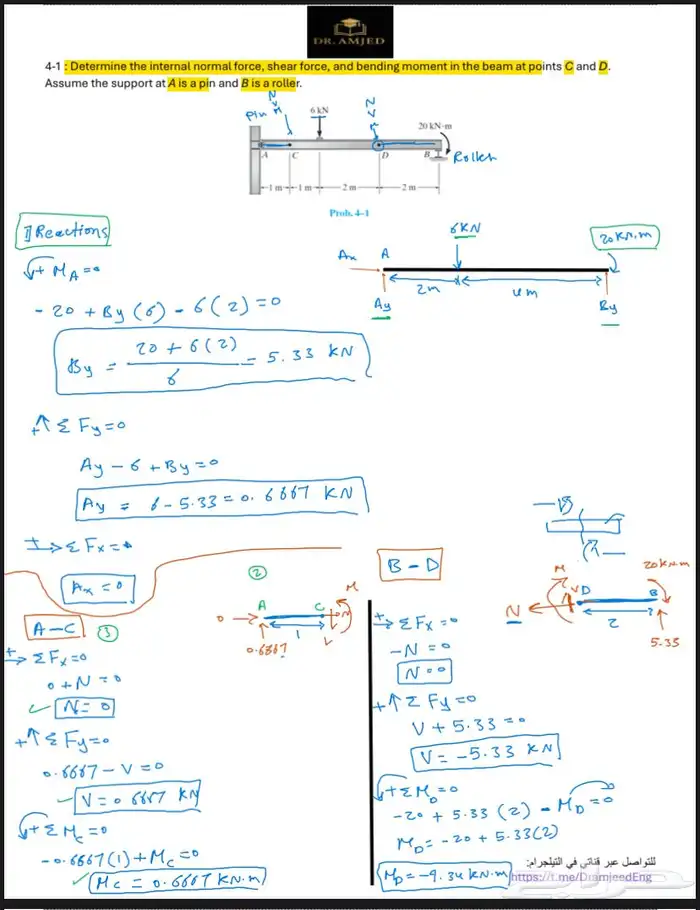 DR. AMJED
4-1 : Determine the internal normal force, shear force, and bending moment in the beam at points C and D.
Assume the support at A is a pin and B is a roller.
Pin
N
V
M
6 kN
N
V
M
20 kN·m
A
C
D
B
Roller
1 m
1 m
2 m
2 m
Prob. 4-1
1] Reactions
+ MA = 0
- 20 + By (6) - 6 (2) = 0
By = 20 + 6 (2) / 6 = 5.33 KN
Ax
A
6KN
20 KN.m
2m
4m
Ay
By
+ Σ Fy = 0
Ay - 6 + By = 0
Ay = 6 - 5.33 = 0.6667 KN
+ Σ Fx = 0
Ax = 0
A-C
3
2
0
A
C
M
N
V
1
0.6667
+ Σ Fx = 0
0 + N = 0
N = 0
+ Σ Fy = 0
0.6667 - V = 0
V = 0.6667 KN
+ Σ Mc = 0
-0.6667(1) + Mc = 0
Mc = 0.6667 KN.m
B - D
M
N
V
D
B
20KN.m
2
5.33
+ Σ Fx = 0
-N = 0
N = 0
+ Σ Fy = 0
V + 5.33 = 0
V = -5.33 KN
+ Σ MD = 0
-20 + 5.33 (2) - MD = 0
MD = -20 + 5.33(2)
MD = -9.34 KN.m
للتواصل عبر قناتي في التيلجرام:
https://t.me/DramjeedEng